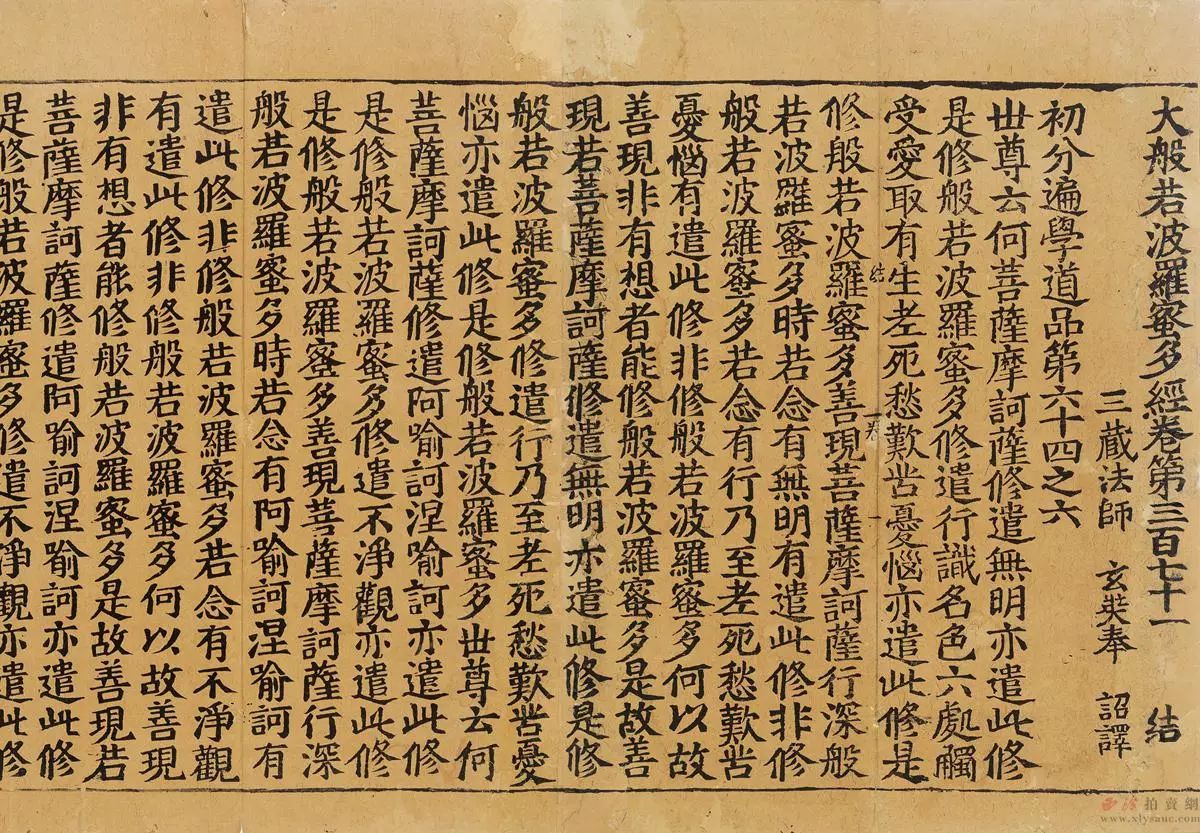 大般若波羅蜜多經卷第三百七十一 結
三藏法師 玄奘奉 詔譯
初分遍學道品第六十四之六
世尊云何菩薩摩訶薩修遣無明亦遣此修
是修般若波羅蜜多修遣行識名色六處觸
受愛取有生老死愁歎苦憂惱亦遣此修是
結 一卷 一
修般若波羅蜜多善現菩薩摩訶薩行深般
若波羅蜜多時若念有無明有遣此修非修
般若波羅蜜多若念有行乃至老死愁歎苦
憂惱有遣此修非修般若波羅蜜多何以故
善現非有想者能修般若波羅蜜多是故善
現若菩薩摩訶薩修遣無明亦遣此修是修
般若波羅蜜多修遣行乃至老死愁歎苦憂
惱亦遣此修是修般若波羅蜜多世尊云何
菩薩摩訶薩修遣阿喻訶涅喻訶亦遣此修
是修般若波羅蜜多修遣不淨觀亦遣此修
是修般若波羅蜜多善現菩薩摩訶薩行深
般若波羅蜜多時若念有阿喻訶涅喻訶有
遣此修非修般若波羅蜜多若念有不淨觀
有遣此修非修般若波羅蜜多何以故善現
非有想者能修般若波羅蜜多是故善現若
菩薩摩訶薩修遣阿喻訶涅喻訶亦遣此修
是修般若波羅蜜多修遣不淨觀亦遣此修
西泠拍賣網
www.xlysauc.com